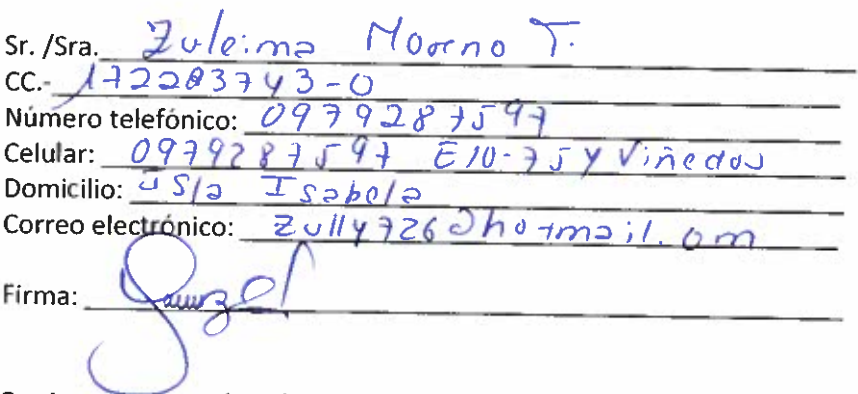 Sr. /Sra. Zuleima Moreno T.
CC.- 172283743-0
Número telefónico: 0979287597
Celular: 0979287597 E10-75 y Viñedos
Domicilio: Isla Isabela
Correo electrónico: zully726@hotmail.com
Firma: